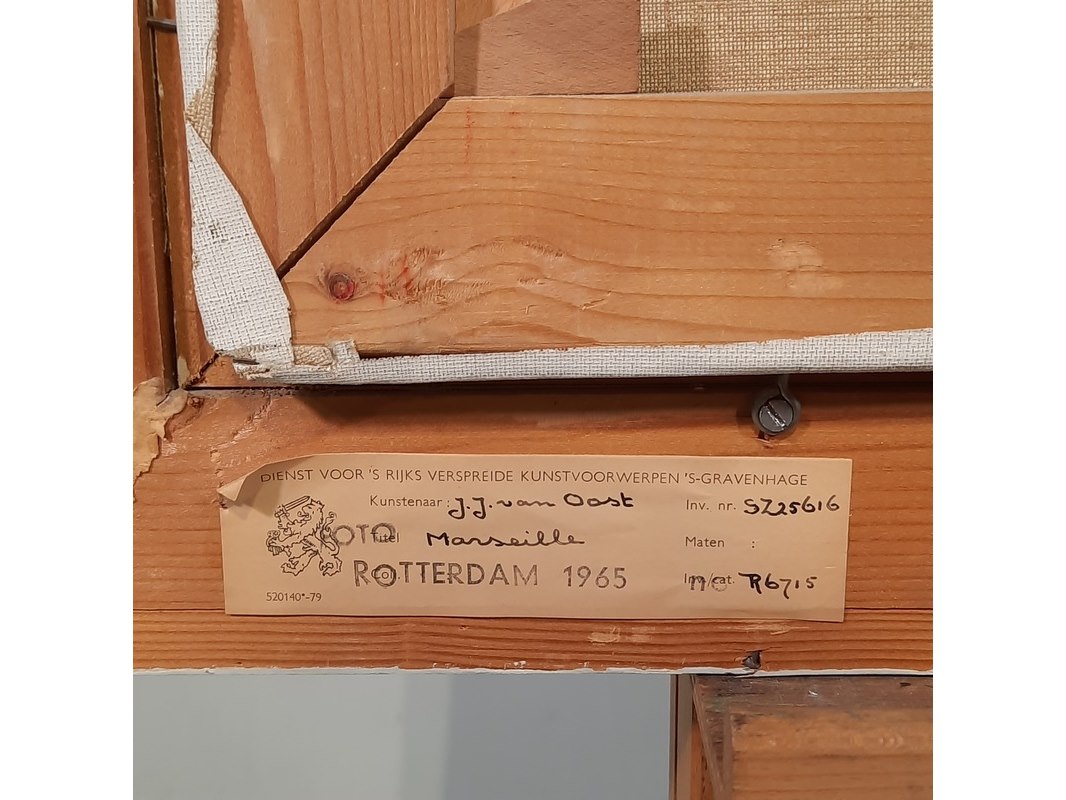 DIENST VOOR 'S RIJKS VERSPREIDE KUNSTVOORWERPEN 'S-GRAVENHAGE
Kunstenaar : J.J. van Oost Inv. nr. SZ25616
OTO Titel Marseille Maten :
ROTTERDAM 1965 Inv./cat. no R6715
520140*-79